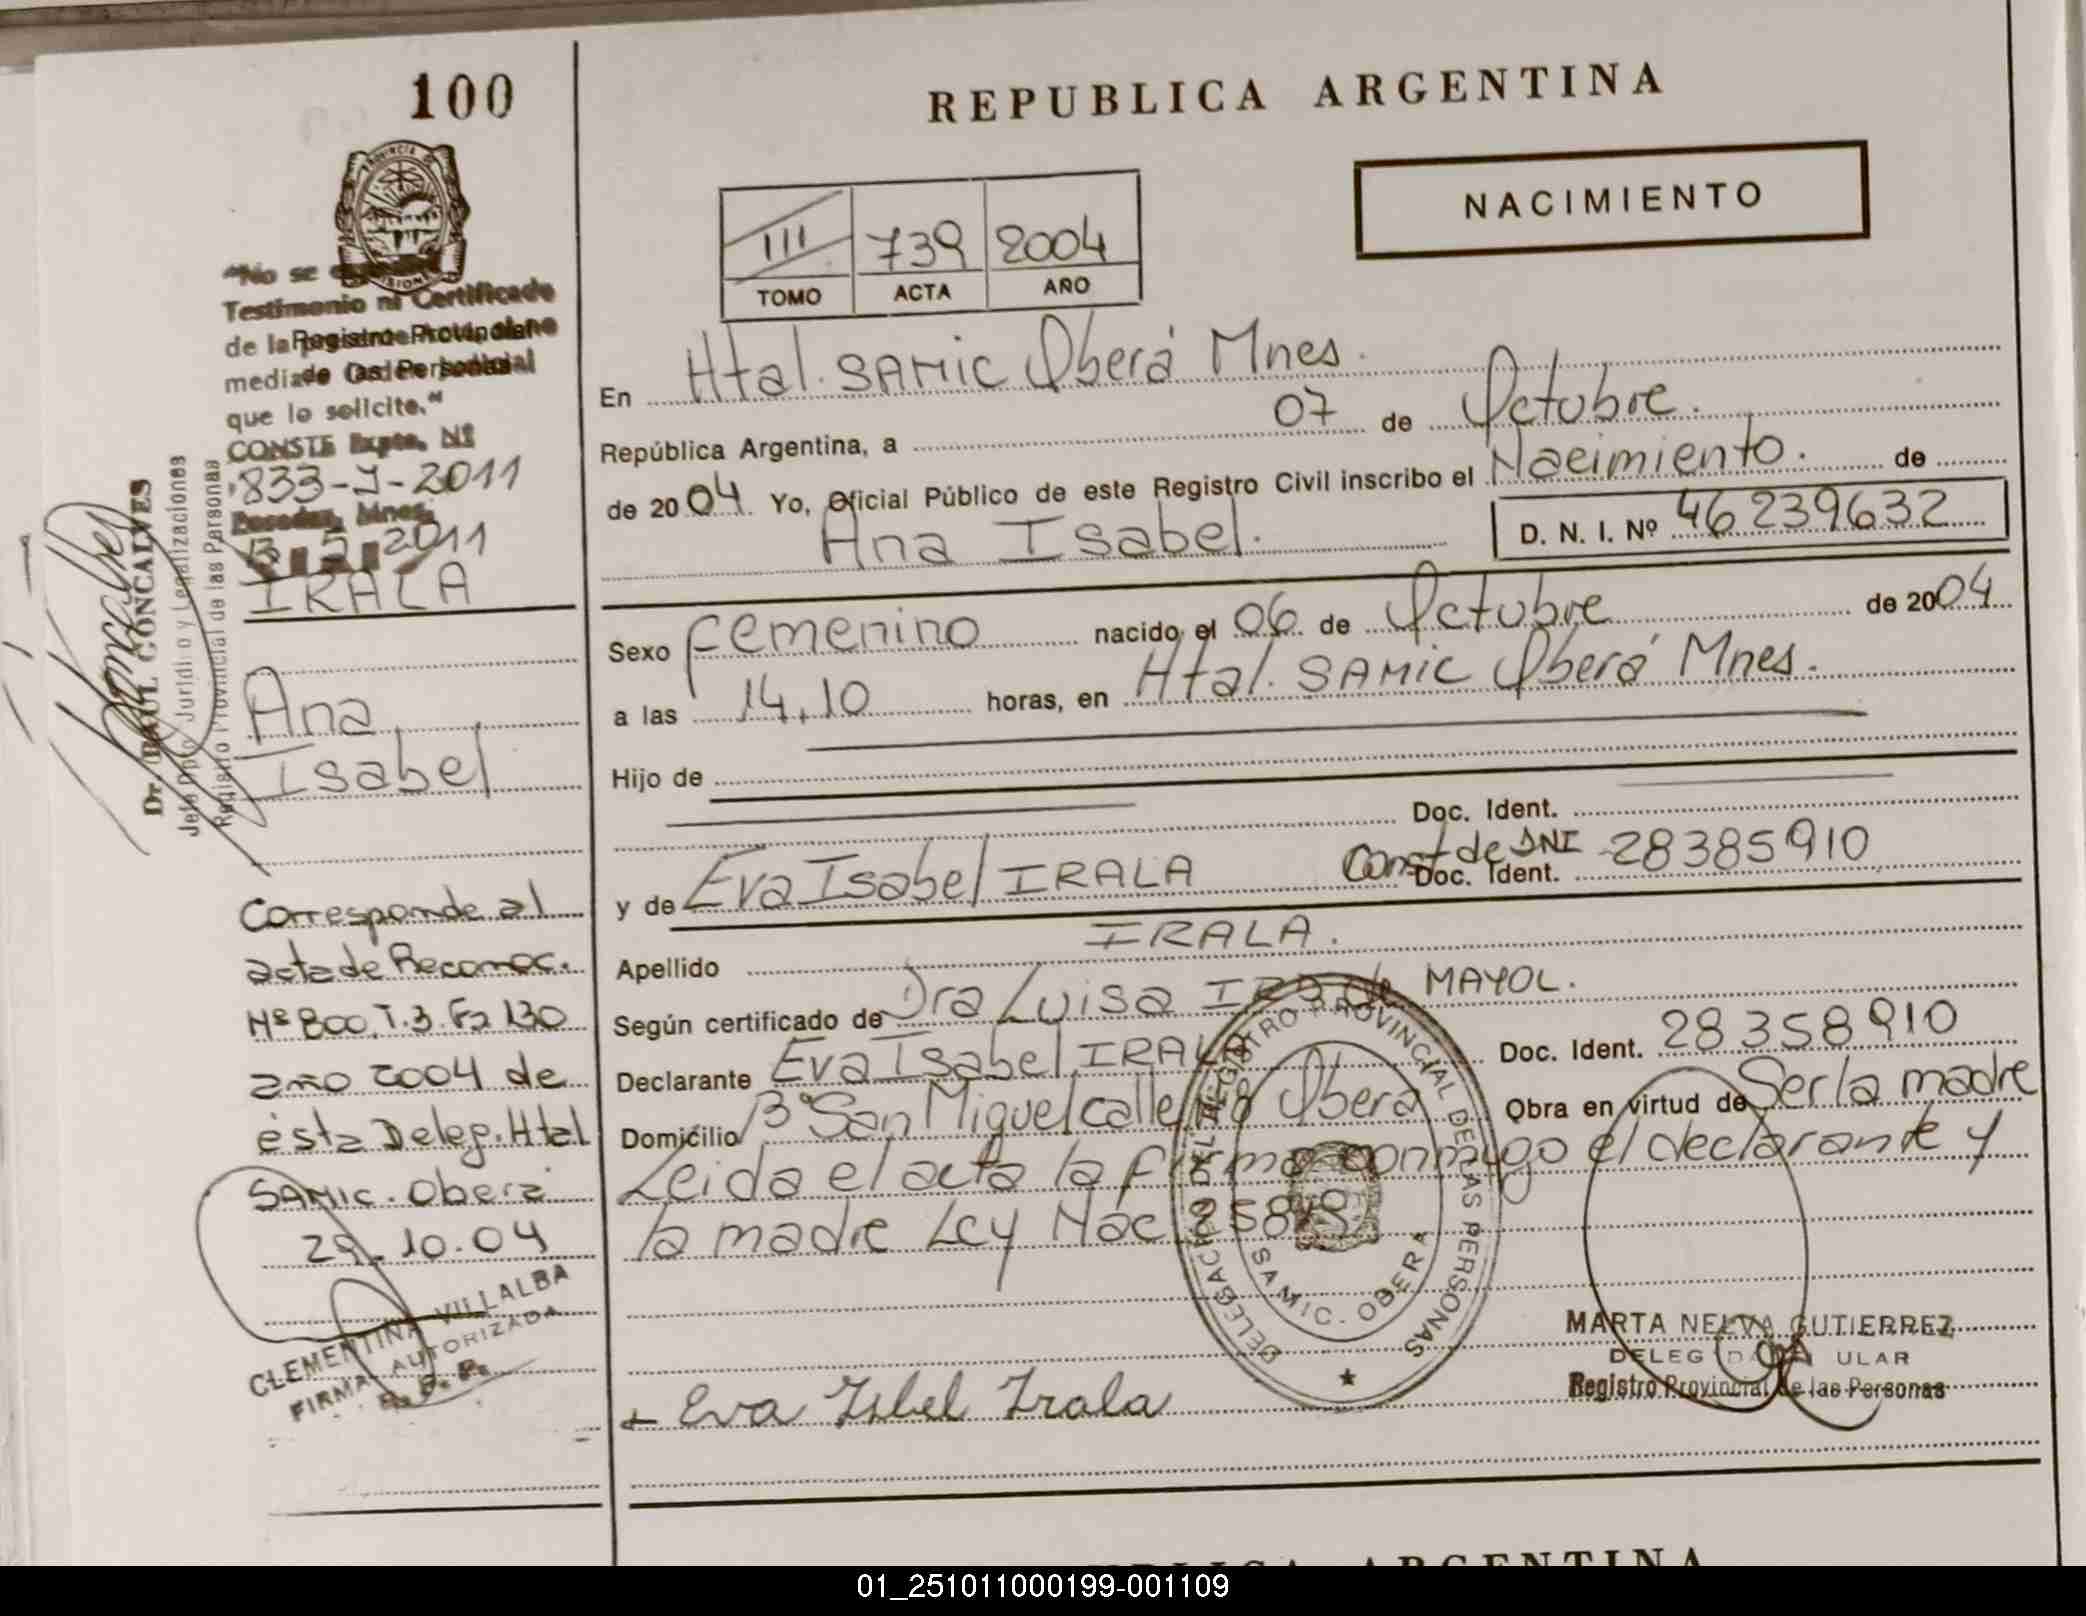 100
PROVINCIA DE MISIONES
"No se
Testimonio ni Certificado
de la
Registro Provincial
de las Personas
que lo solicite."
CONSTE Expte. Nº
833-J-2011
Posadas, Mnes,
13 5 2011
Dr. RAUL GONCALVES
Jefe Dpto. Jurídico y Legalizaciones
Registro Provincial de las Personas
IRALA
Ana
Isabel
Corresponde al
acta de Reconoc.
Nº 800. T.3. Fº 130
año 2004 de
ésta Deleg. Htal
SAMIC. Oberá
29.10.04
CLEMENTINA VILLALBA
FIRMA AUTORIZADA
R. P. P.
REPUBLICA ARGENTINA
NACIMIENTO
III 739 2004
TOMO ACTA AÑO
En Htal. SAMIC Oberá Mnes.
República Argentina, a 07 de Octubre.
de 2004. Yo, Oficial Público de este Registro Civil inscribo el Nacimiento. de
Ana Isabel. D. N. I. Nº 46239632
Sexo femenino nacido el 06 de Octubre de 2004
a las 14,10 horas, en Htal. SAMIC Oberá Mnes.
Hijo de
Doc. Ident.
Const de DNI
y de Eva Isabel IRALA Doc. Ident. 28385910
Apellido IRALA.
Según certificado de Dra Luisa de MAYOL.
Declarante Eva Isabel IRALA Doc. Ident. 28358910
Domicilio Bº San Miguel calle Nº 8 Oberá Obra en virtud de Ser la madre
Leida el acta la firma conmigo el declarante y
la madre Ley Nac
DELEGACION DEL REGISTRO PROVINCIAL DE LAS PERSONAS
SAMIC. OBERA
MARTA NELVA GUTIERREZ
DELEG ULAR
Registro Provincial de las Personas
Eva Isbel Irala
REPUBLICA ARGENTINA
01_251011000199-001109